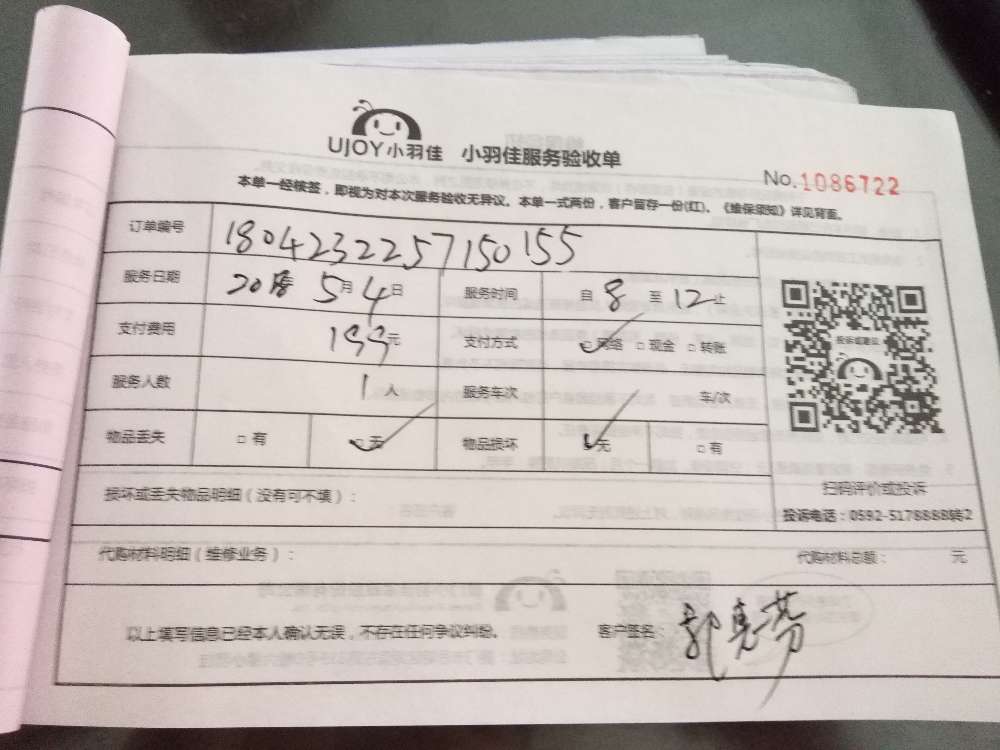 UJOY小羽佳 小羽佳服务验收单
No.1086722
本单一经核签，即视为对本次服务验收无异议。本单一式两份，客户留存一份(红)。《维保须知》详见背面。
订单编号 1804232257150155
服务日期 2018 5月4日 服务时间 自8至12止
支付费用 199元 支付方式 网络 □现金 □转账
服务人数 1人 服务车次 车/次
物品丢失 □有 □无 物品损坏 无 □有
投诉或建议
扫码评价或投诉
损坏或丢失物品明细（没有可不填）：
投诉电话：0592-5178888转2
代购材料明细（维修业务）： 代购材料总额： 元
以上填写信息已经本人确认无误，不存在任何争议纠纷。 客户签名：郭惠芬